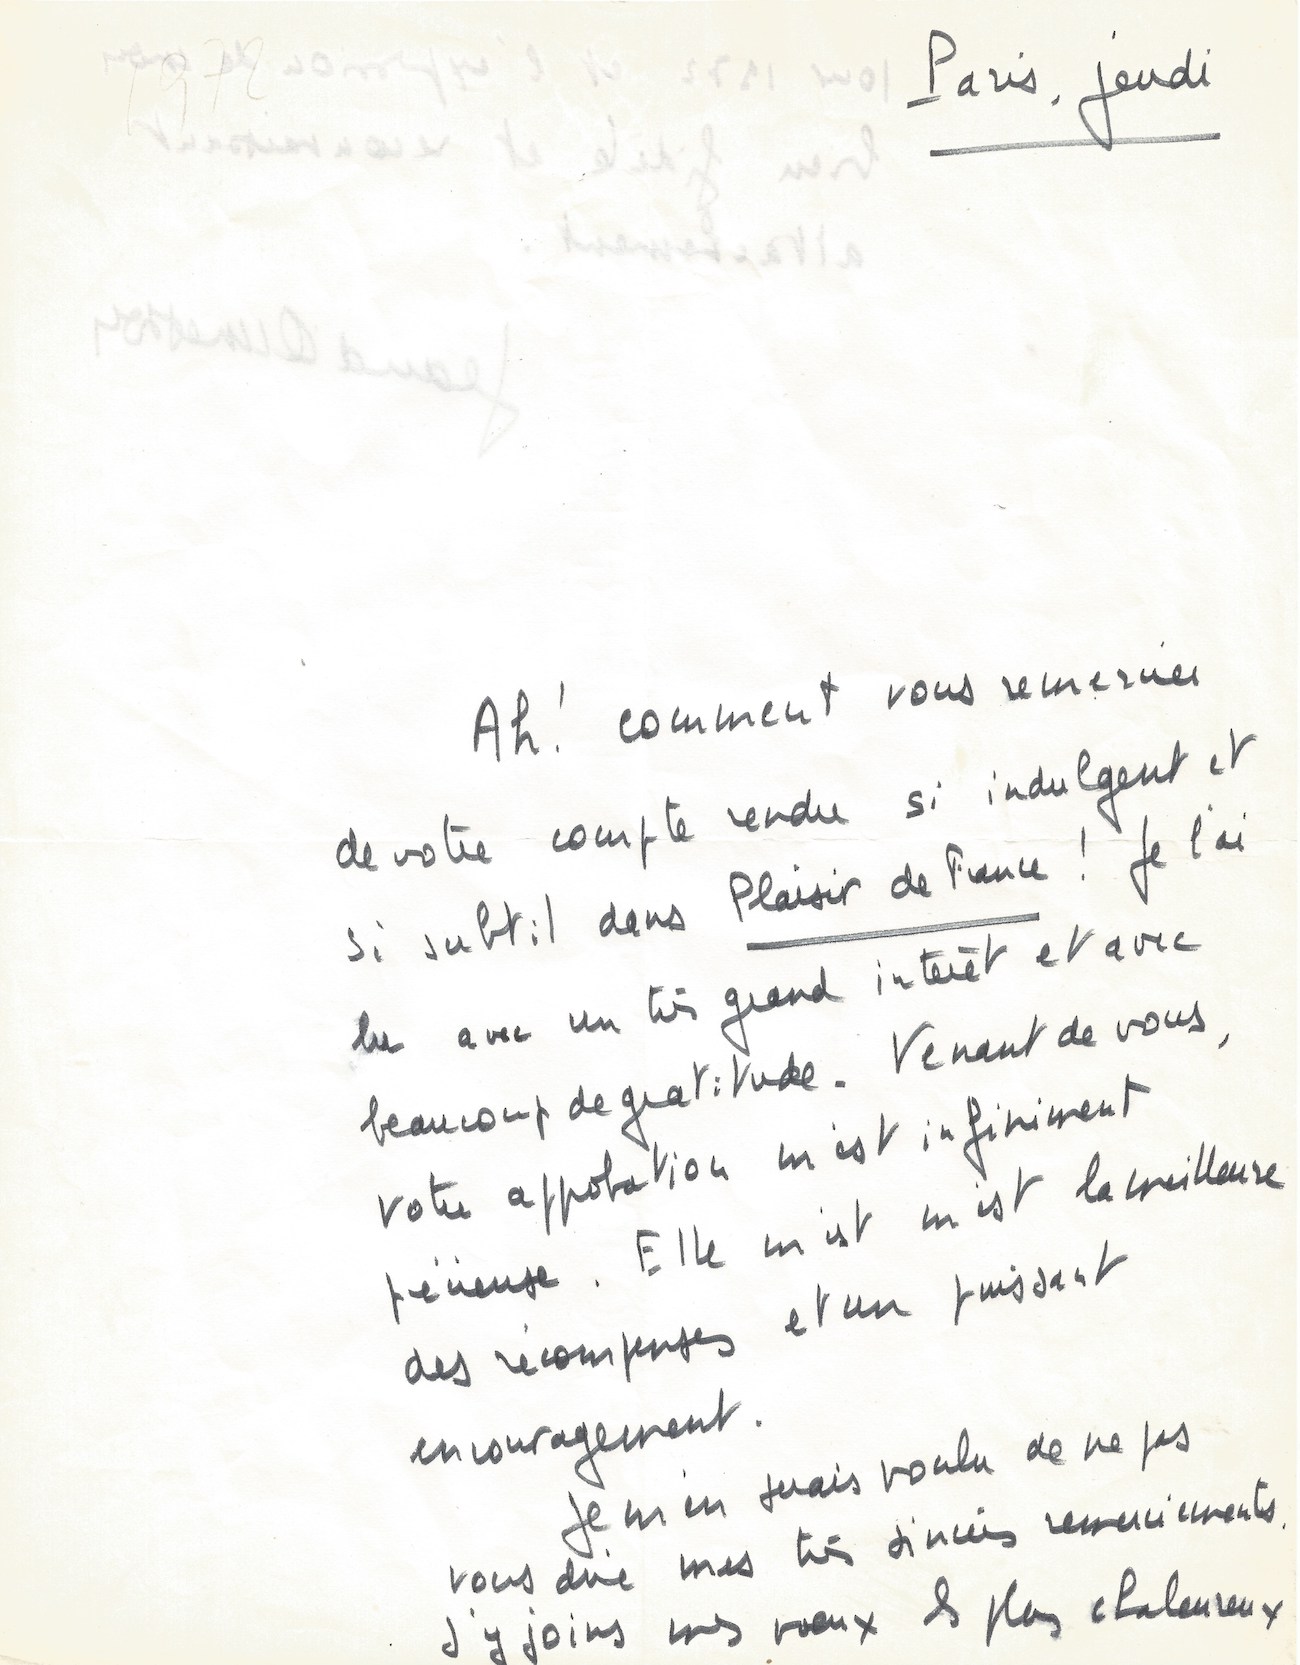 Paris, jeudi
Ah! comment vous remercier
de votre compte rendu si indulgent et
si subtil dans Plaisir de France ! Je l'ai
lu avec un très grand intérêt et avec
beaucoup de gratitude. Venant de vous,
votre approbation m'est infiniment
précieuse. Elle m'est m'est la meilleure
des récompenses et un puissant
encouragement.
Je m'en serais voulu de ne pas
vous dire mes très sincères remerciements.
J'y joins mes voeux les plus chaleureux
pour 1972 et l'expression de mon
bien fidèle et reconnaissant
attachement.
Jean d'Ormesson
1972